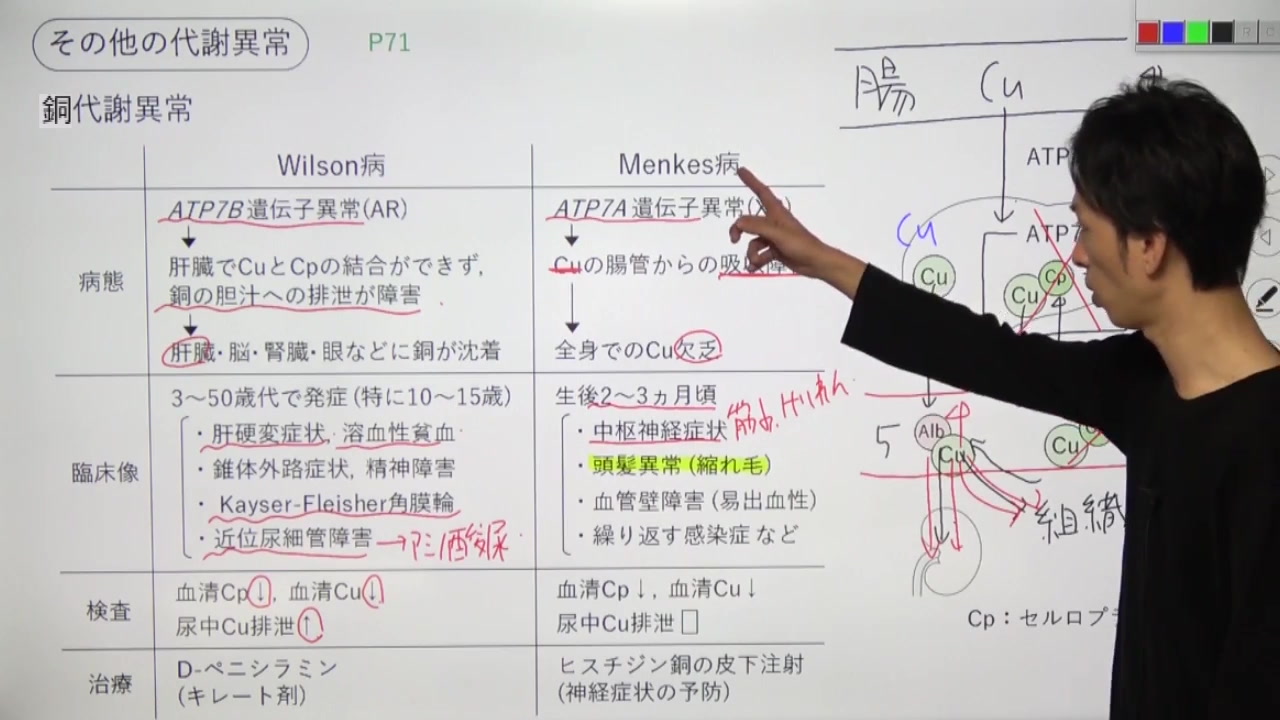 その他の代謝異常
P71
銅代謝異常
Wilson病
Menkes病
病態
ATP7B遺伝子異常(AR)
肝臓でCuとCpの結合ができず,
銅の胆汁への排泄が障害
肝臓・脳・腎臓・眼などに銅が沈着
ATP7A遺伝子異常
Cuの腸管からの吸収障
全身でのCu欠乏
臨床像
3〜50歳代で発症(特に10〜15歳)
・肝硬変症状, 溶血性貧血
・錐体外路症状, 精神障害
・Kayser-Fleisher角膜輪
・近位尿細管障害→アミノ酸尿
生後2〜3ヵ月頃
・中枢神経症状
・頭髪異常(縮れ毛)
・血管壁障害(易出血性)
・繰り返す感染症 など
けいれん
検査
血清Cp↓, 血清Cu↓
尿中Cu排泄↑
血清Cp↓, 血清Cu↓
尿中Cu排泄
治療
D-ペニシラミン
(キレート剤)
ヒスチジン銅の皮下注射
(神経症状の予防)
腸 Cu
ATP
Cu
ATP7
Cu
Cu
Cp
Alb
Cu
Cu
組織
Cp：セルロプ